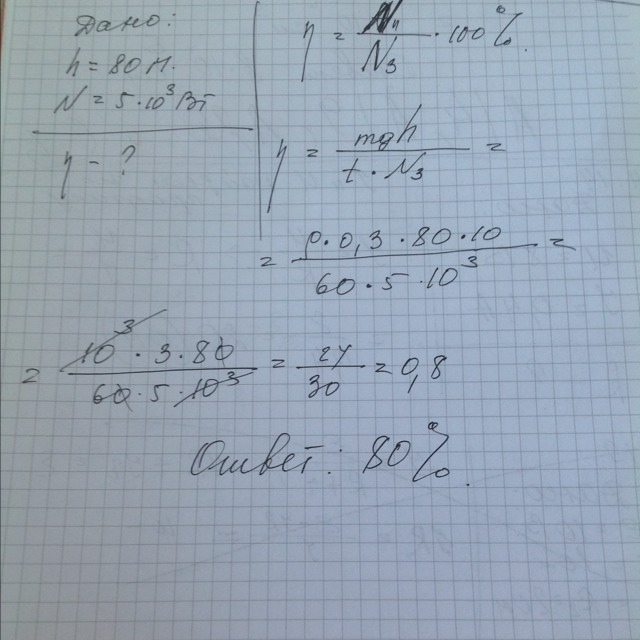 Дано:
h = 80 м.
N = 5·10³ Вт
η - ?
η = Nп / Nз · 100%.
η = mgh / t · Nз =
= ρ·0,3·80·10 / 60·5·10³ =
= 10³·3·80 / 60·5·10³ = 24 / 30 = 0,8
Ответ: 80%.